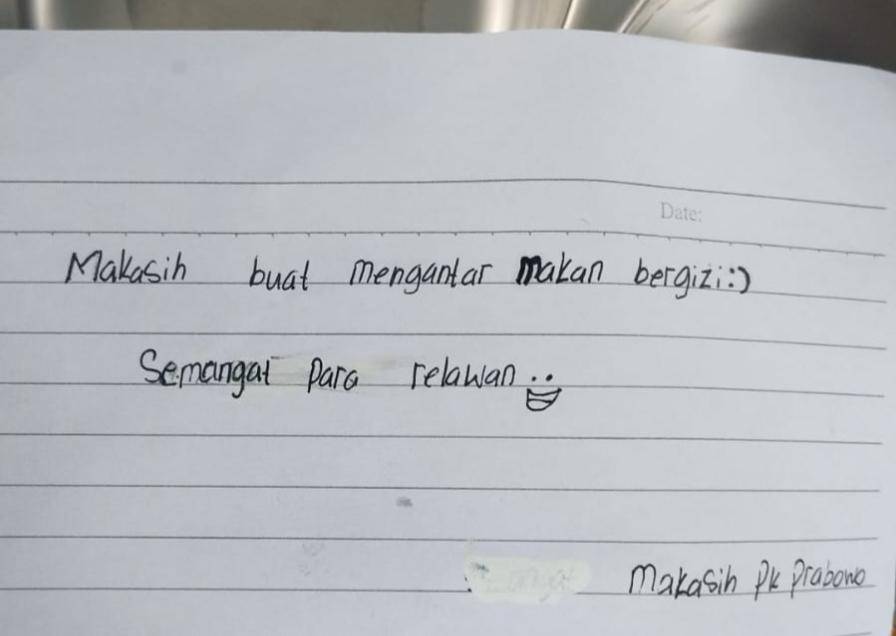 Date:
Makasih buat mengantar makan bergizi:)
Semangat para relawan
Makasih Pk Prabowo